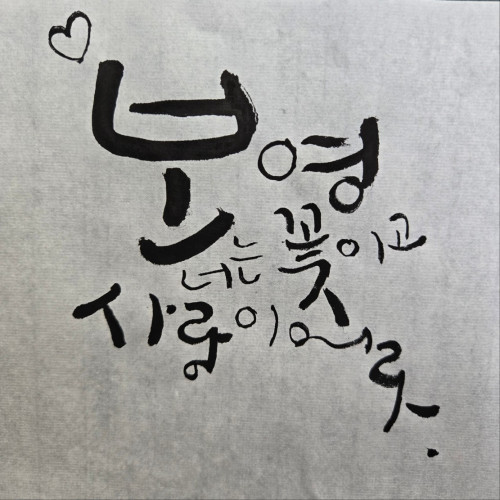 보영
너는 꽃이고
사랑이어라.